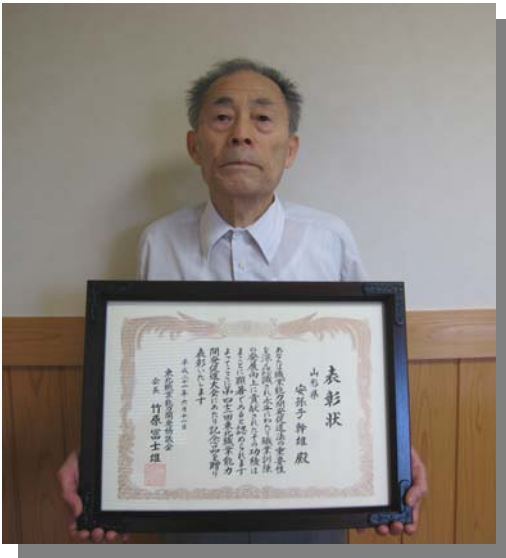 表彰状
山形県
安孫子幹雄 殿
あなたは職業能力開発促進法の重要性
を深く認識され永年にわたり職業訓練
の発展向上に貢献されたその功績は
まことに顕著であると認められます
よってここに第四十三回東北職業能力
開発促進大会にあたり記念品を贈り
表彰いたします
平成二十一年六月十一日
東北職業能力開発協議会
会長 竹原富士雄